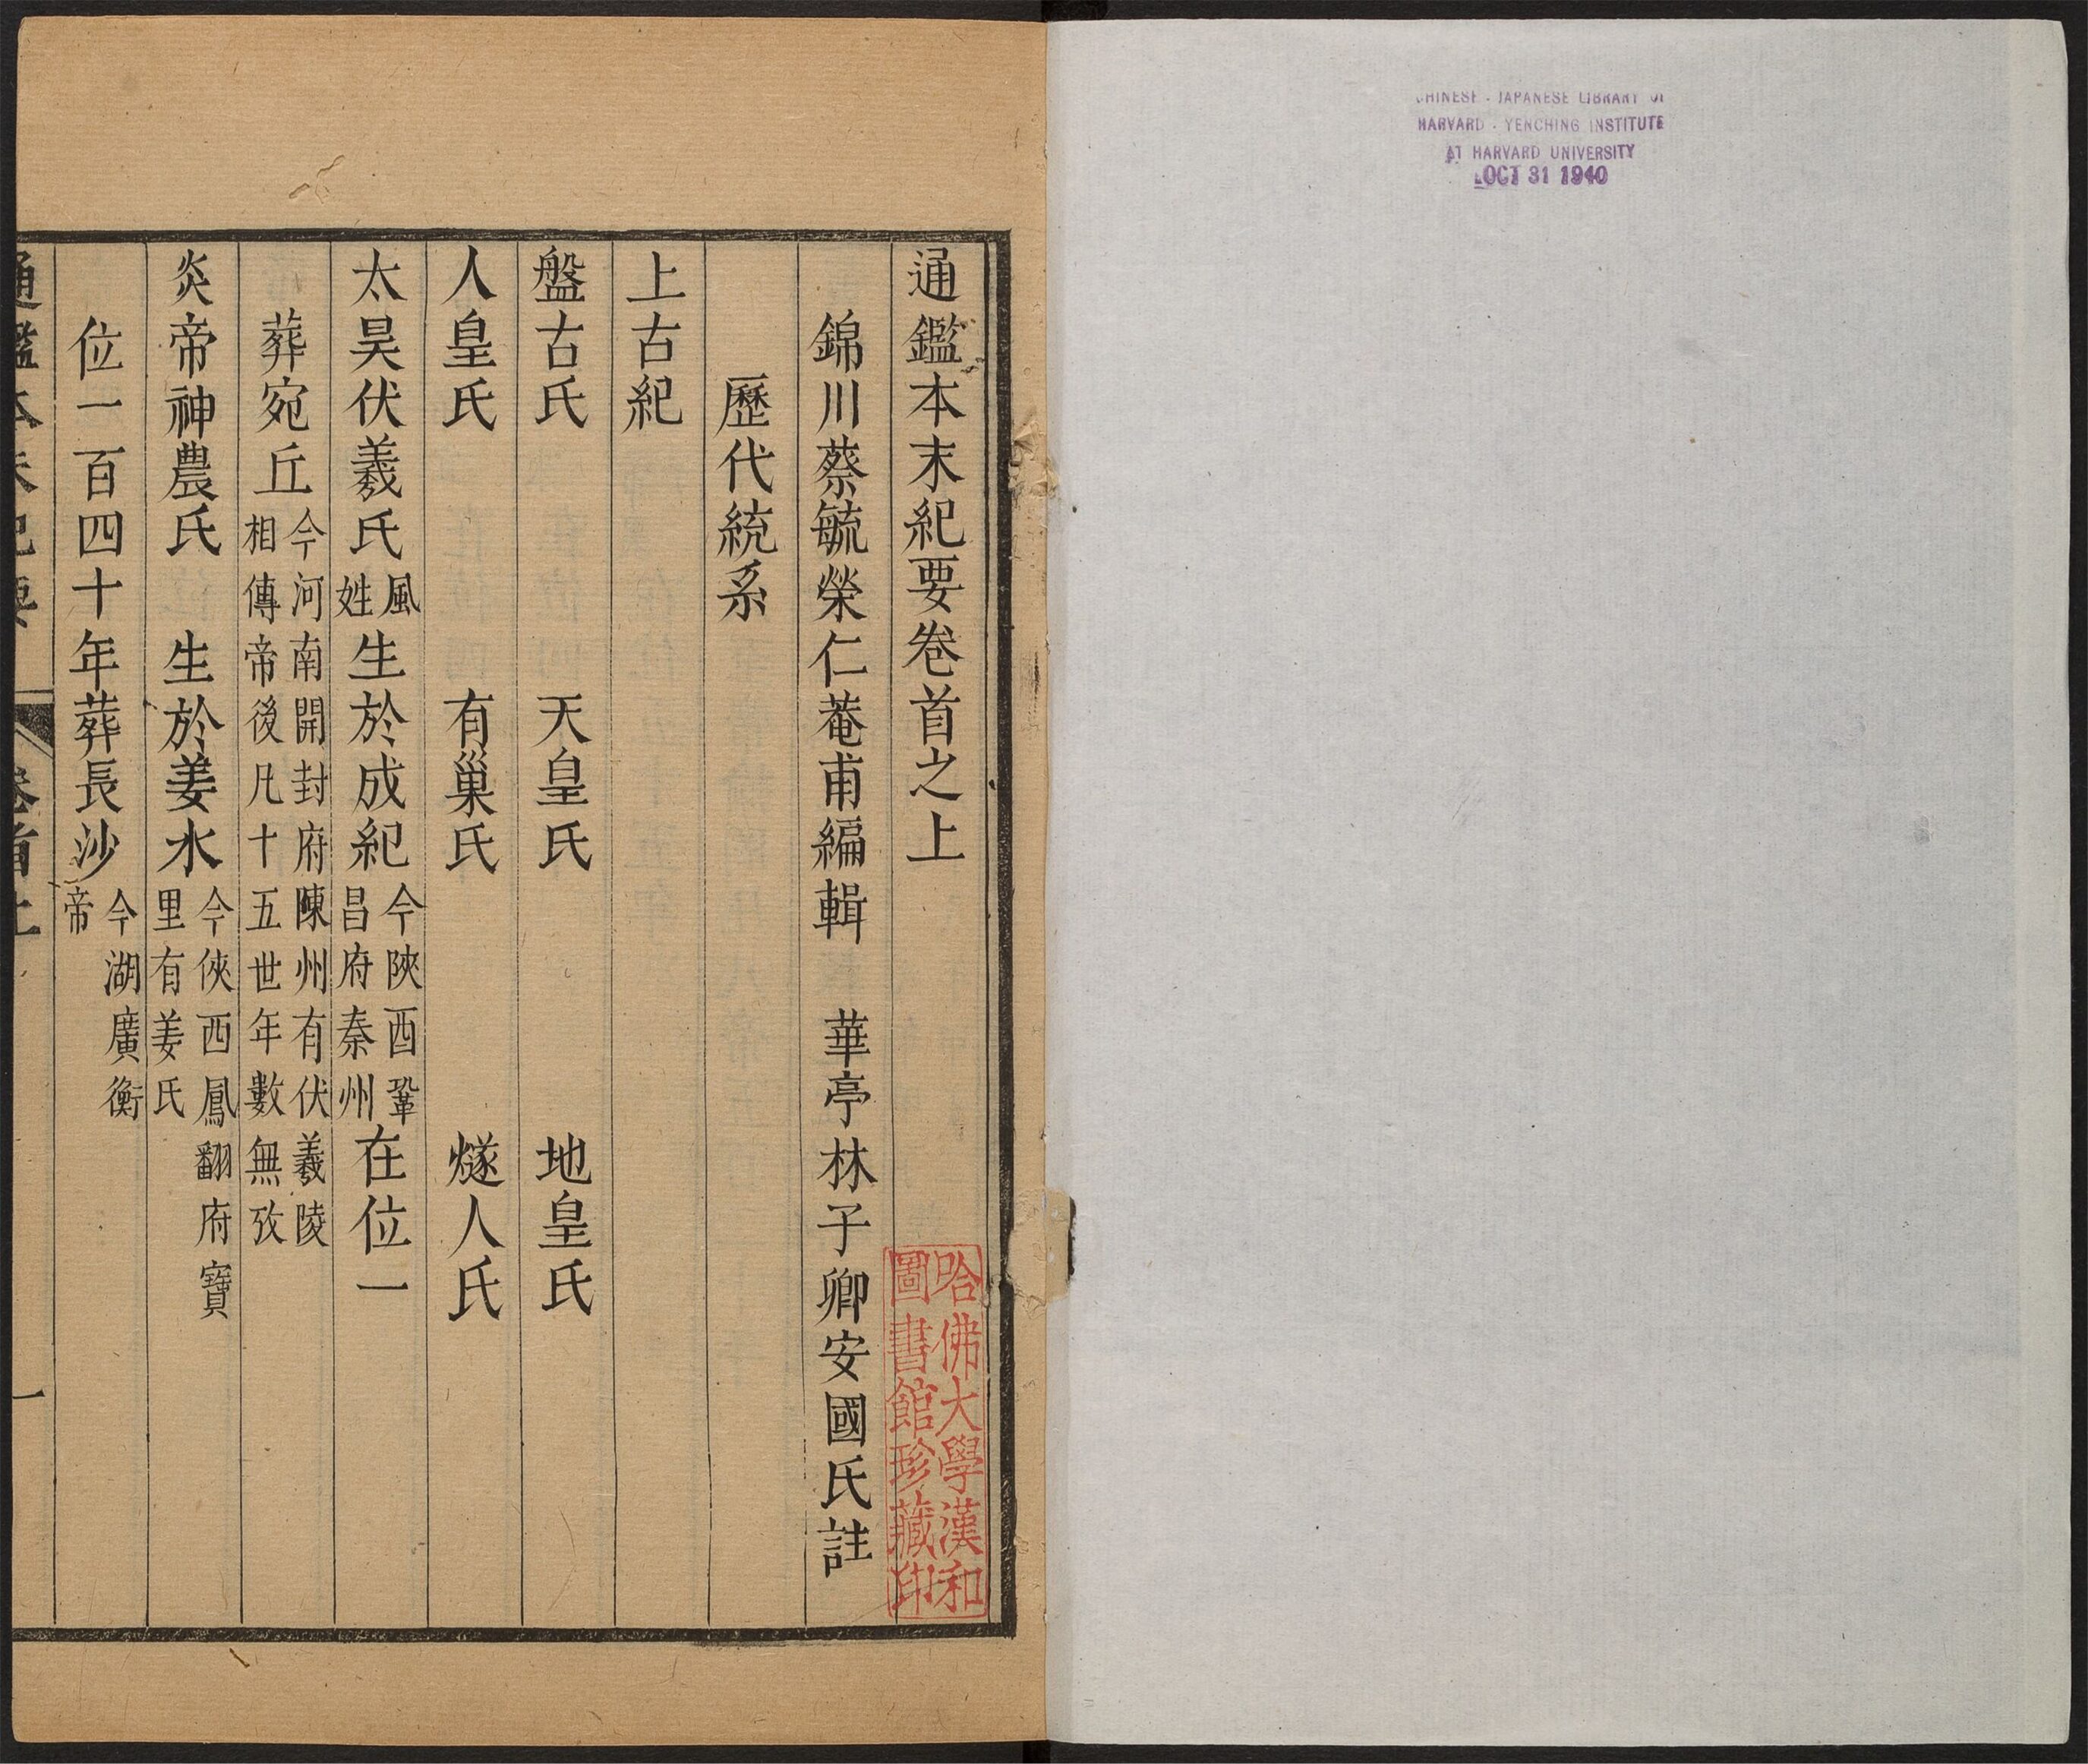 CHINESE - JAPANESE LIBRARY OF
HARVARD - YENCHING INSTITUTE
AT HARVARD UNIVERSITY
OCT 31 1940
通鑑本末紀要卷首之上
錦川蔡毓榮仁菴甫編輯　華亭林子卿安國氏註
歷代統系
上古紀
盤古氏　天皇氏　地皇氏
人皇氏　有巢氏　燧人氏
太昊伏羲氏風姓生於成紀今陝西鞏昌府秦州在位一
葬宛丘今河南開封府陳州有伏羲陵相傳帝後凡十五世年數無攷
炎帝神農氏　生於姜水今俠西鳳翻府寶里有姜氏
位一百四十年葬長沙今湖廣衡帝
通鑑本末紀要　卷首上　一
哈佛大學漢和
圖書館珍藏印